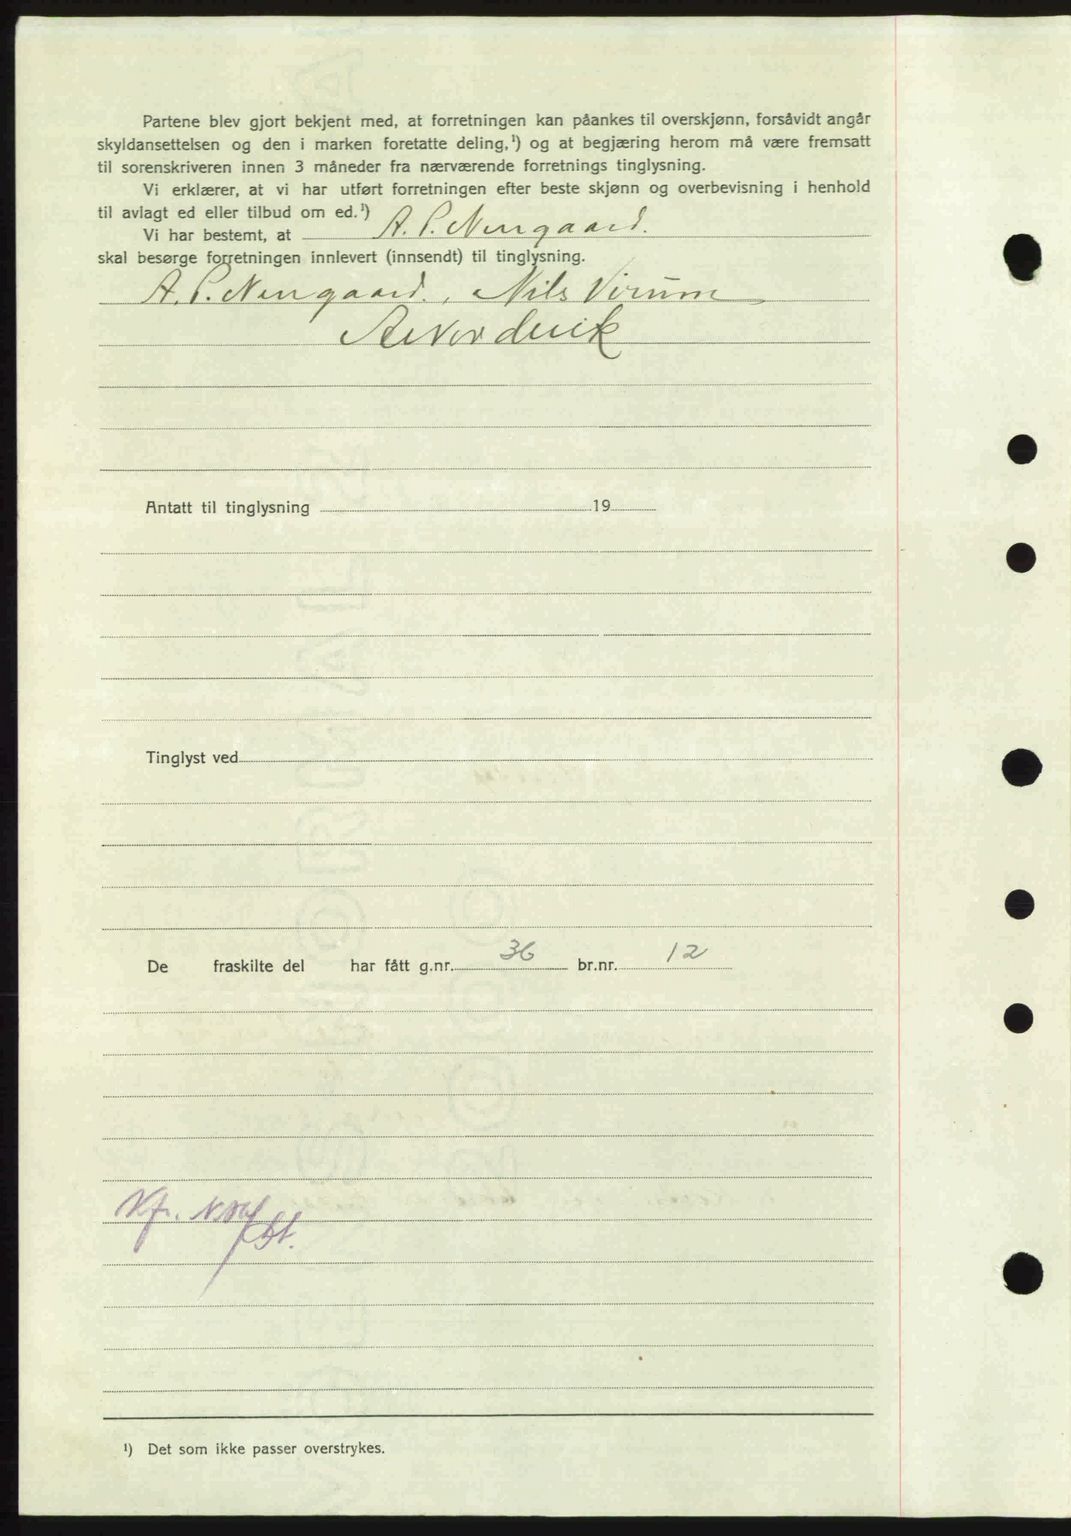 Partene blev gjort bekjent med, at forretningen kan påankes til overskjønn, forsåvidt angår
skyldansettelsen og den i marken foretatte deling,¹) og at begjæring herom må være fremsatt
til sorenskriveren innen 3 måneder fra nærværende forretnings tinglysning.
Vi erklærer, at vi har utført forretningen efter beste skjønn og overbevisning i henhold
til avlagt ed eller tilbud om ed.¹)
Vi har bestemt, at A. P. Nergaard.
skal besørge forretningen innlevert (innsendt) til tinglysning.
A. P. Nergaard., Nils Virum
Antatt til tinglysning 19
Tinglyst ved
De fraskilte del har fått g.nr. 36 br.nr. 12
Kfr.
¹) Det som ikke passer overstrykes.